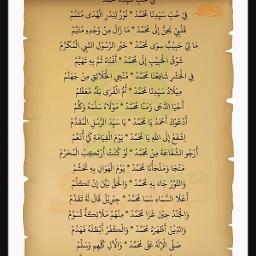 فِي حُبِّ سَيِّدِنَا مُحَمَّدْ
فِي حُبِّ سَيِّدِنَا مُحَمَّدْ * نُورٌ لِبَدْرِ الْهُدَى مُتَمَّمْ
قَلْبِي يَحِنُّ إِلَى مُحَمَّدْ * مَا زَالَ مِنْ وَجْدِهِ مُتَيَّمْ
مَا لِي حَبِيبٌ سِوَى مُحَمَّدْ * خَيْرِ الرَّسُولِ النَّبِي الْمُكَرَّمْ
شَوْقُ الْمُحِبِّ إِلَى مُحَمَّدْ * أَفْنَاهُ ثُمَّ بِهِ تَهَيَّمْ
فِي الْحَشْرِ شَافِعُنَا مُحَمَّدْ * مُنْجِي الْخَلَائِقِ مِنْ جَهَنَّمْ
مِيلَادُ سَيِّدِنَا مُحَمَّدْ * أُمُّ الْقُرَى بَلَدٌ مُعَظَّمْ
أَحْيَا الدُّجَى زَمَنًا مُحَمَّدْ * مَوْلَاهُ سَلَّمَهُ وَكَلَّمْ
أَدْعُوكَ أَحْمَدُ يَا مُحَمَّدْ * يَا سَيِّدَ الرُّسُلِ الْمُقَدَّمْ
اِشْفَعْ إِلَى اللهِ يَا مُحَمَّدْ * يَوْمَ الْقِيَامَةِ كَيْ أُنَعَّمْ
أَرْجُو الشَّفَاعَةَ مِنْ مُحَمَّدْ * لَوْ كُنْتُ أَرْتَكِبُ الْمُحَرَّمْ
مَنْجَا وَمَلْجَأُنَا مُحَمَّدْ * يَوْمَ الْهَوَانِ بِهِ نُحَشَّمْ
وَالنُّورُ جَاءَ بِهِ مُحَمَّدْ * وَالْحَقُّ بَيَّنَ إِنْ تَكَلَّمْ
أَعْلَا السَّمَاءِ سَمَا مُحَمَّدْ * جِبْرِيلُ قَالَ لَهُ تَقَدَّمْ
وَالْجُنْدُ حِينَ غَزَا مُحَمَّدْ * مِنْهُمْ مَلَائِكَةٌ تُسَوَّمْ
وَالدِّينُ أَظْهَرَهُ مُحَمَّدْ * وَالْكُفْرُ أَبْطَلَهُ فَهَدَّمْ
صَلَّى الْإِلَهُ عَلَى مُحَمَّدْ * وَالْآلِ كُلِّهِمِ وَسَلَّمْ